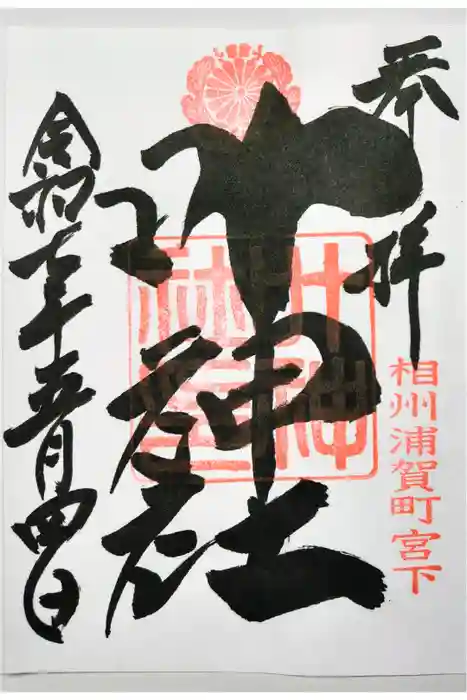 奉拝
相州浦賀町宮下
叶神社
叶神社
令和七年五月四日